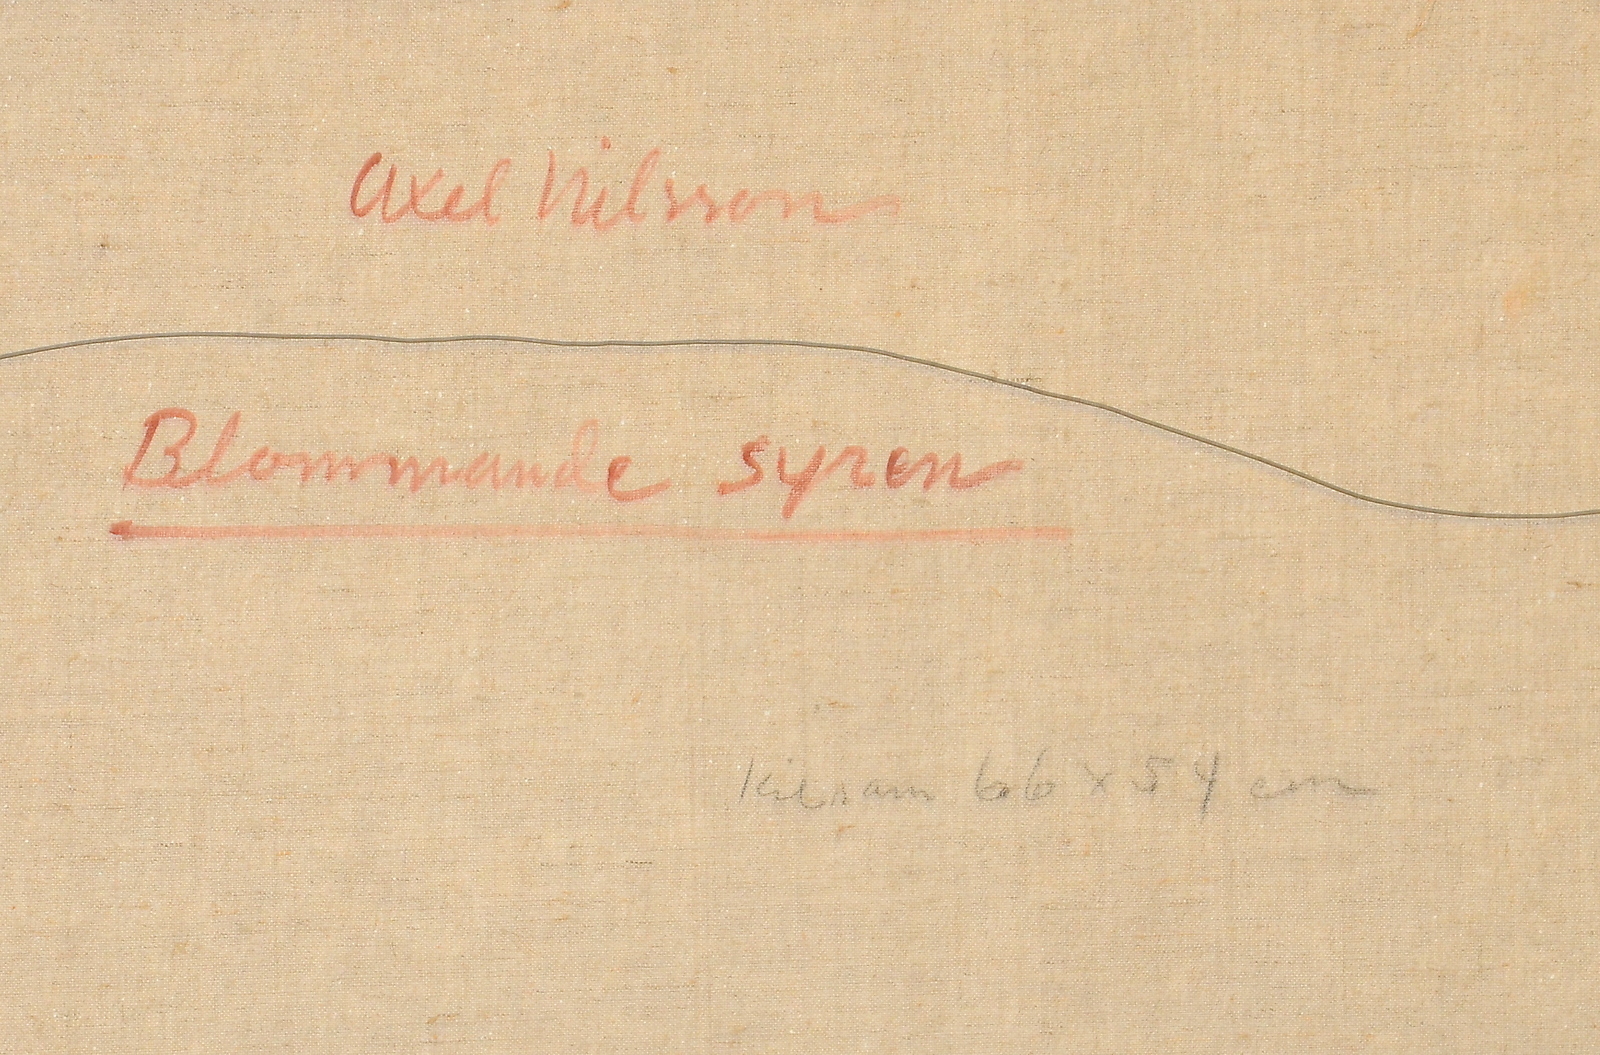 Axel Nilsson
Blommande syren
Kilram 66 x 54 cm